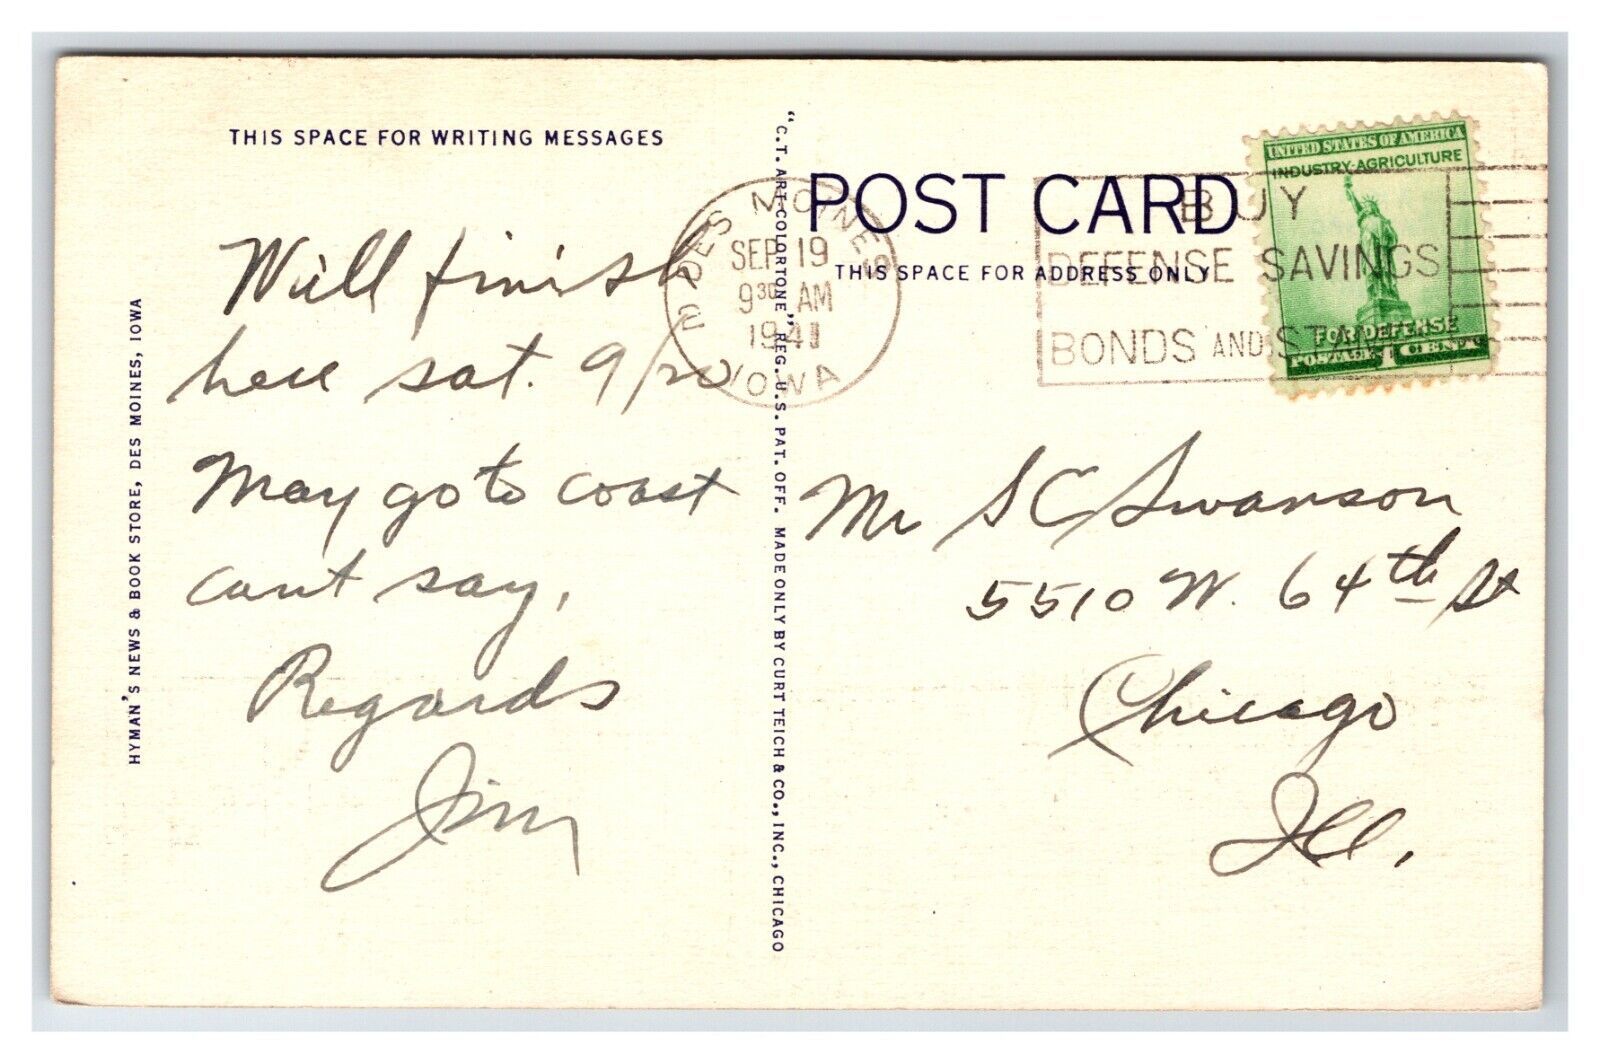 THIS SPACE FOR WRITING MESSAGES
Will finish
here sat. 9/20
May go to coast
cant say,
Regards
Jim
HYMAN'S NEWS & BOOK STORE, DES MOINES, IOWA
"C.T. ART-COLORTONE" REG. U.S. PAT. OFF. MADE ONLY BY CURT TEICH & CO., INC., CHICAGO
POST CARD
THIS SPACE FOR ADDRESS ONLY
DES MOINES
SEP 19
9 30 AM
1941
IOWA
BUY
DEFENSE SAVINGS
BONDS AND STAMPS
UNITED STATES OF AMERICA
INDUSTRY-AGRICULTURE
FOR DEFENSE
POSTAGE 1 CENT
Mr S C Swanson
5510 W. 64th St
Chicago
Ill.